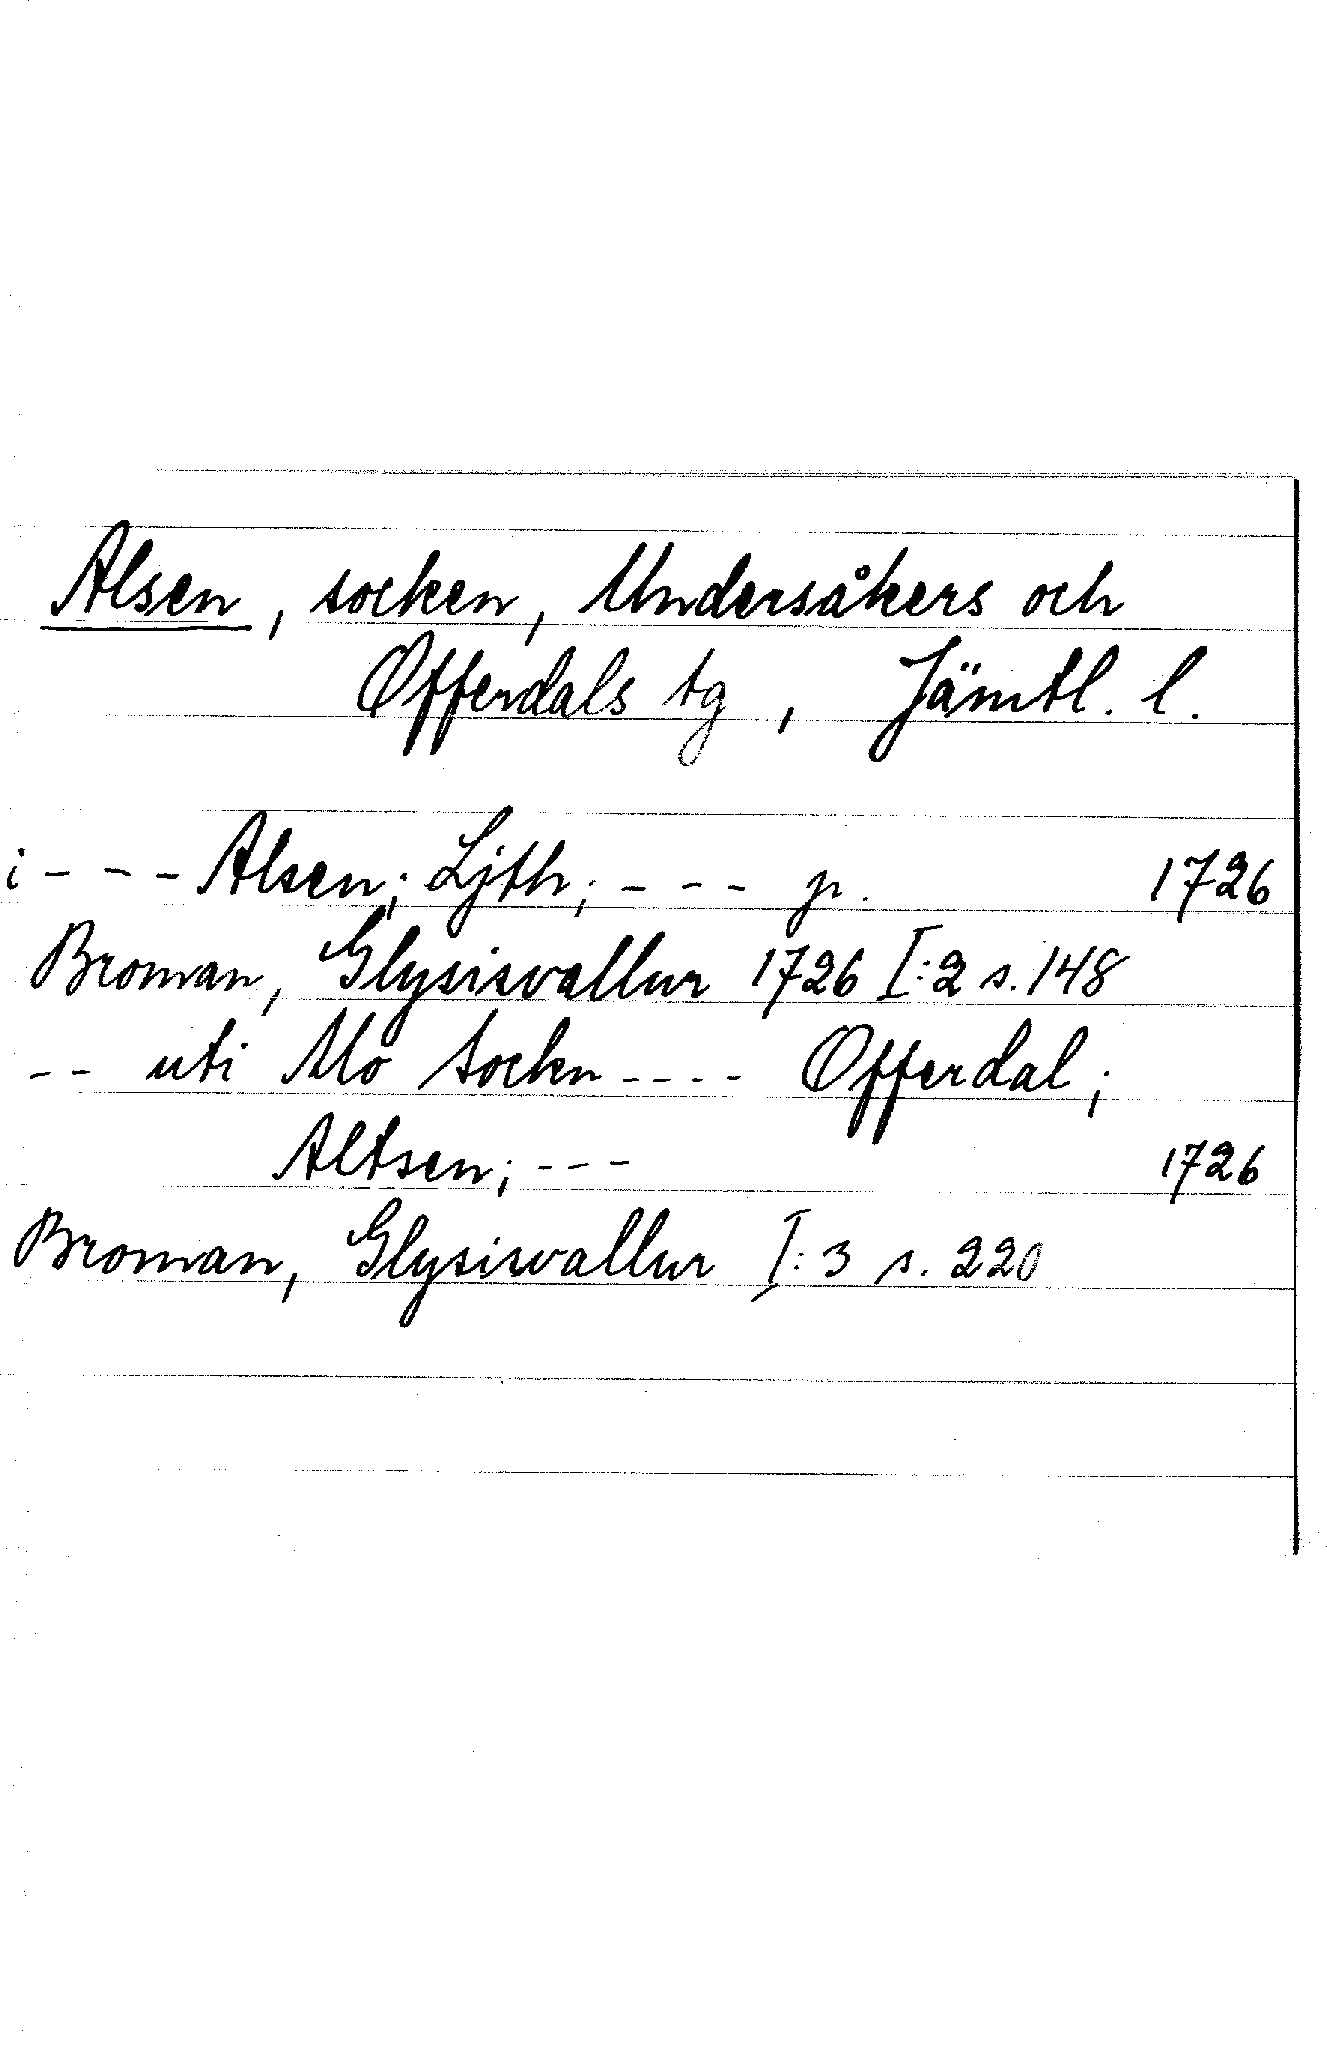 Alsen, socken, Undersåkers och
Offerdals tg, Jämtl. l.
i - - - Alsen; Ljth; - - - p. 1726
Broman, Glysisvallur 1726 I:2 s. 148
- - uti Mo Sockn - - - - Offerdal;
Altsen; - - - 1726
Broman, Glysisvallur I:3 s. 220